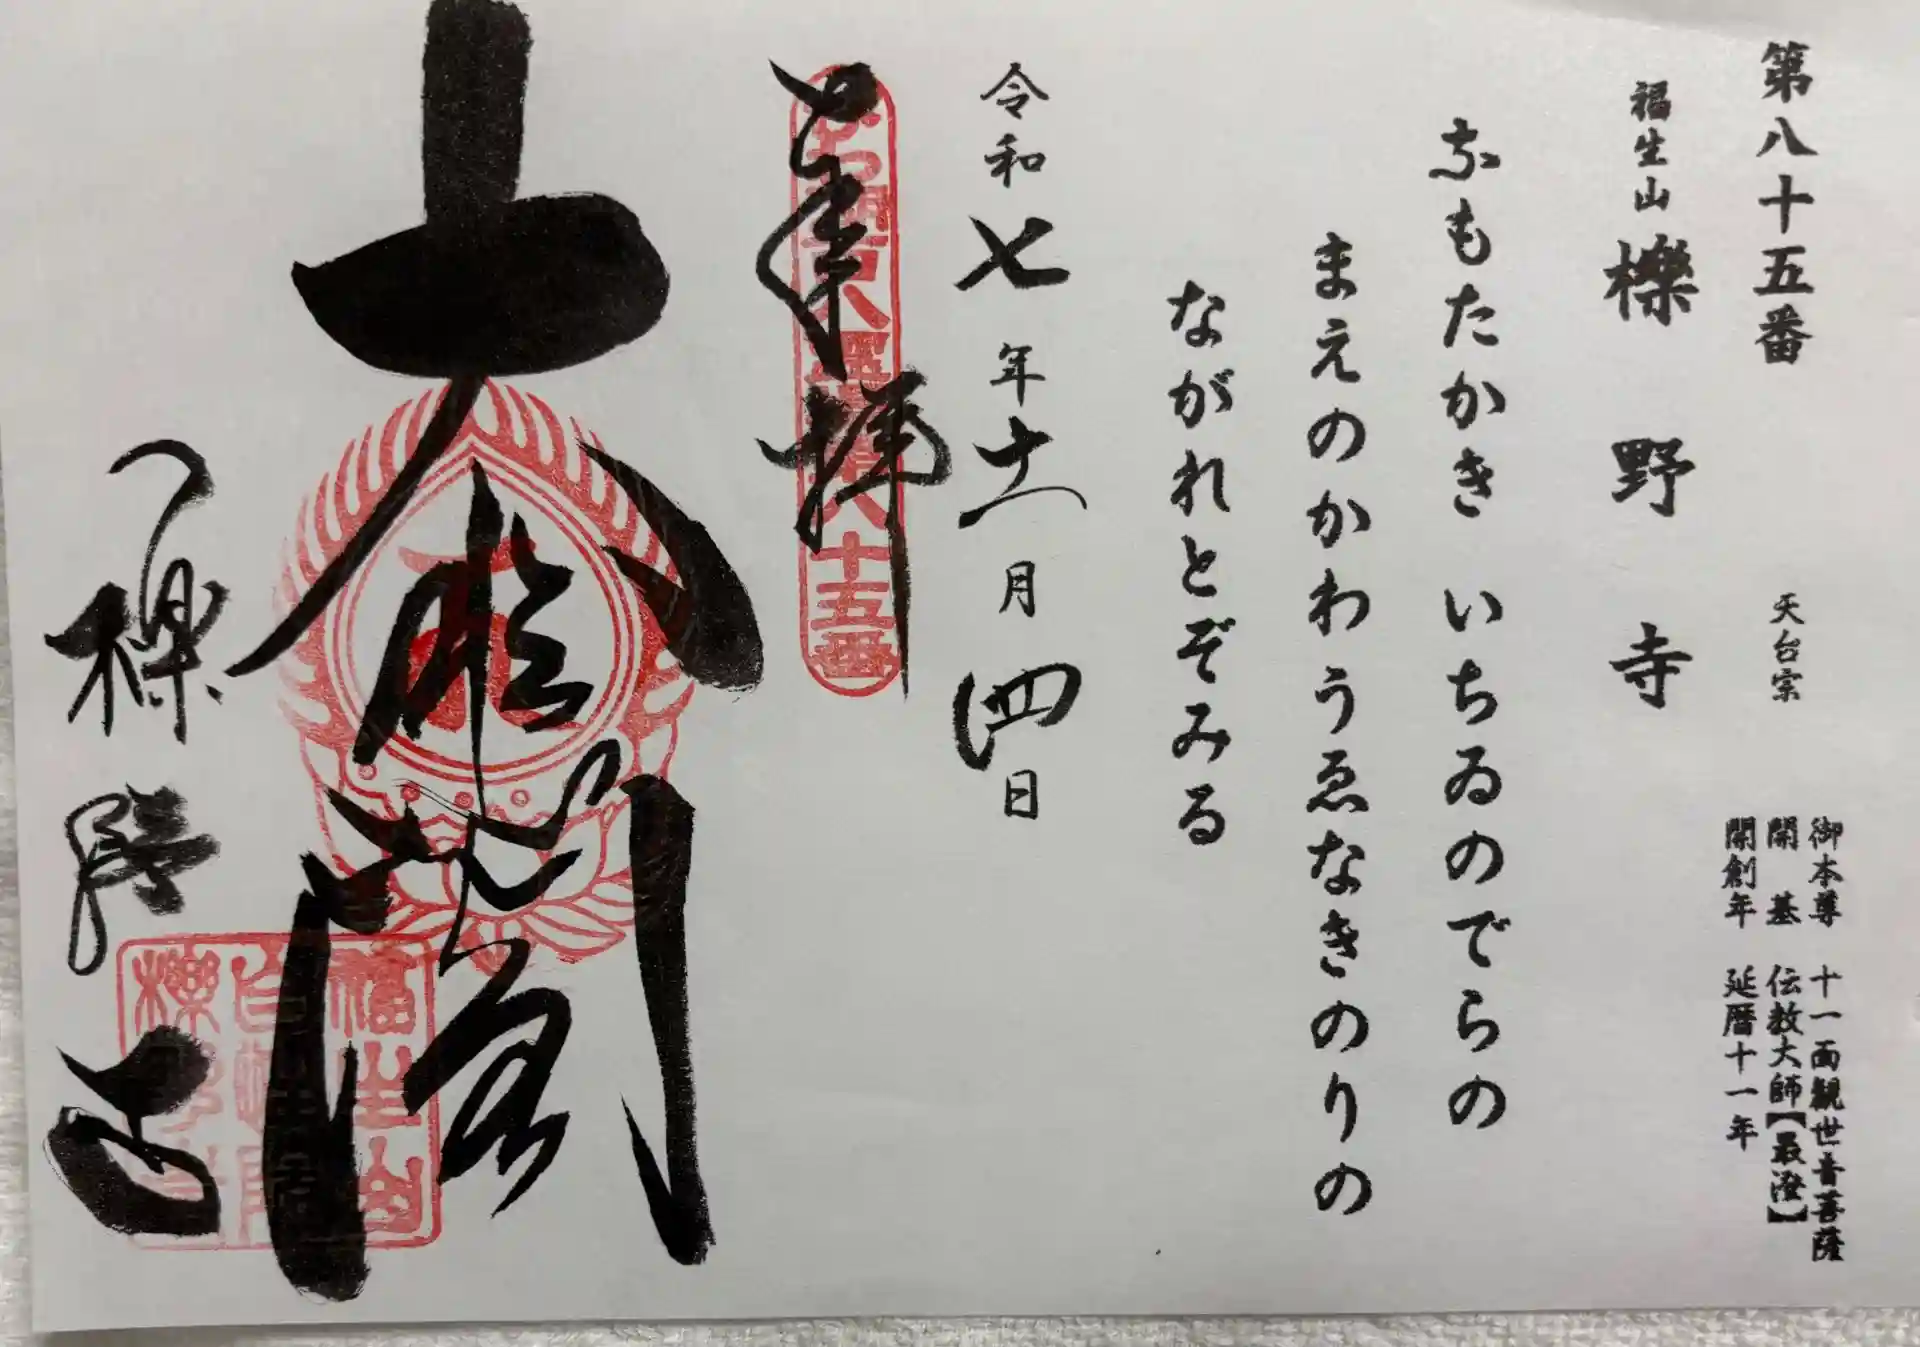 第八十五番
天台宗
御本尊 十一面観世音菩薩
開 基 伝教大師【最澄】
開創年 延暦十一年
福生山
櫟野寺
なもたかき いちゐのでらの
まえのかわうゑなきのりの
ながれとぞみる
令和七年十一月四日
奉拝
十五番
大悲閣
櫟野寺
福生山